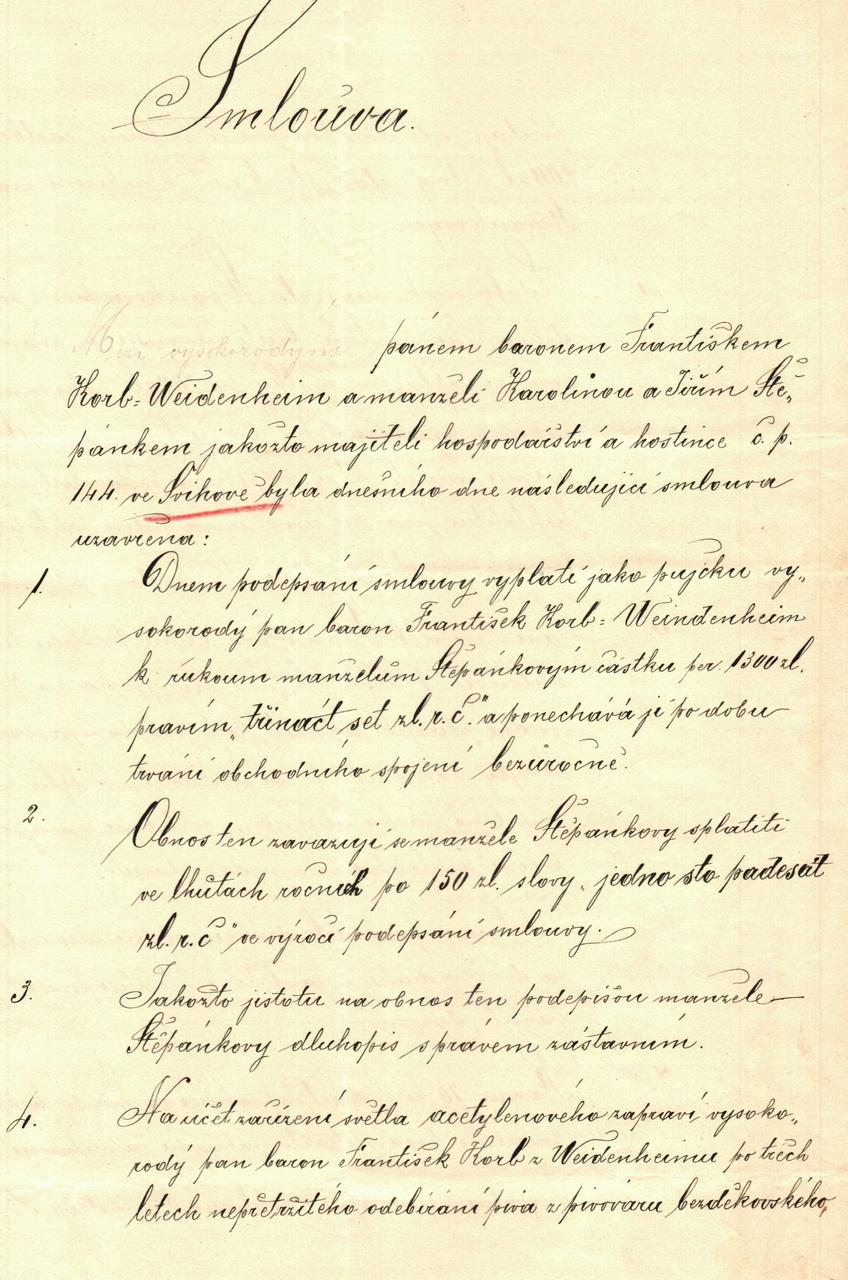 Smlouva.
Mezi vysokorodým pánem baronem Františkem
Korb-Weidenheim a manželi Karolinou a Jiřím Ště„
pánkem jakožto majiteli hospodářství a hostince č. p.
144. ve Švihově byla dnešního dne následující smlouva
uzavřena:
1. Dnem podepsání smlouvy vyplatí jako pujčku vy„
sokorodý pan baron František Korb-Weindenheim
k rukoum manželum Štěpánkovým částku per. 1300 zl.
pravím „třináct set zl. r. č." a ponechává jí po dobu
trvání obchodního spojení bezúročně.
2. Obnos ten zavazují se manželé Štěpánkovy splatiti
ve lhutách ročních po 150 zl. slovy „jedno sto padesát
zl. r. č" ve výročí podepsání smlouvy.
3. Jakožto jistotu na obnos ten podepíšou manželé
Štěpánkovy dluhopis s právem zástavním.
4. Na účet zařízení světla acetylenového zapraví vysoko„
rodý pan baron František Korb z Weidenheimu po třech
letech nepřetržitého odebírání piva z pivováru bezděkovského,